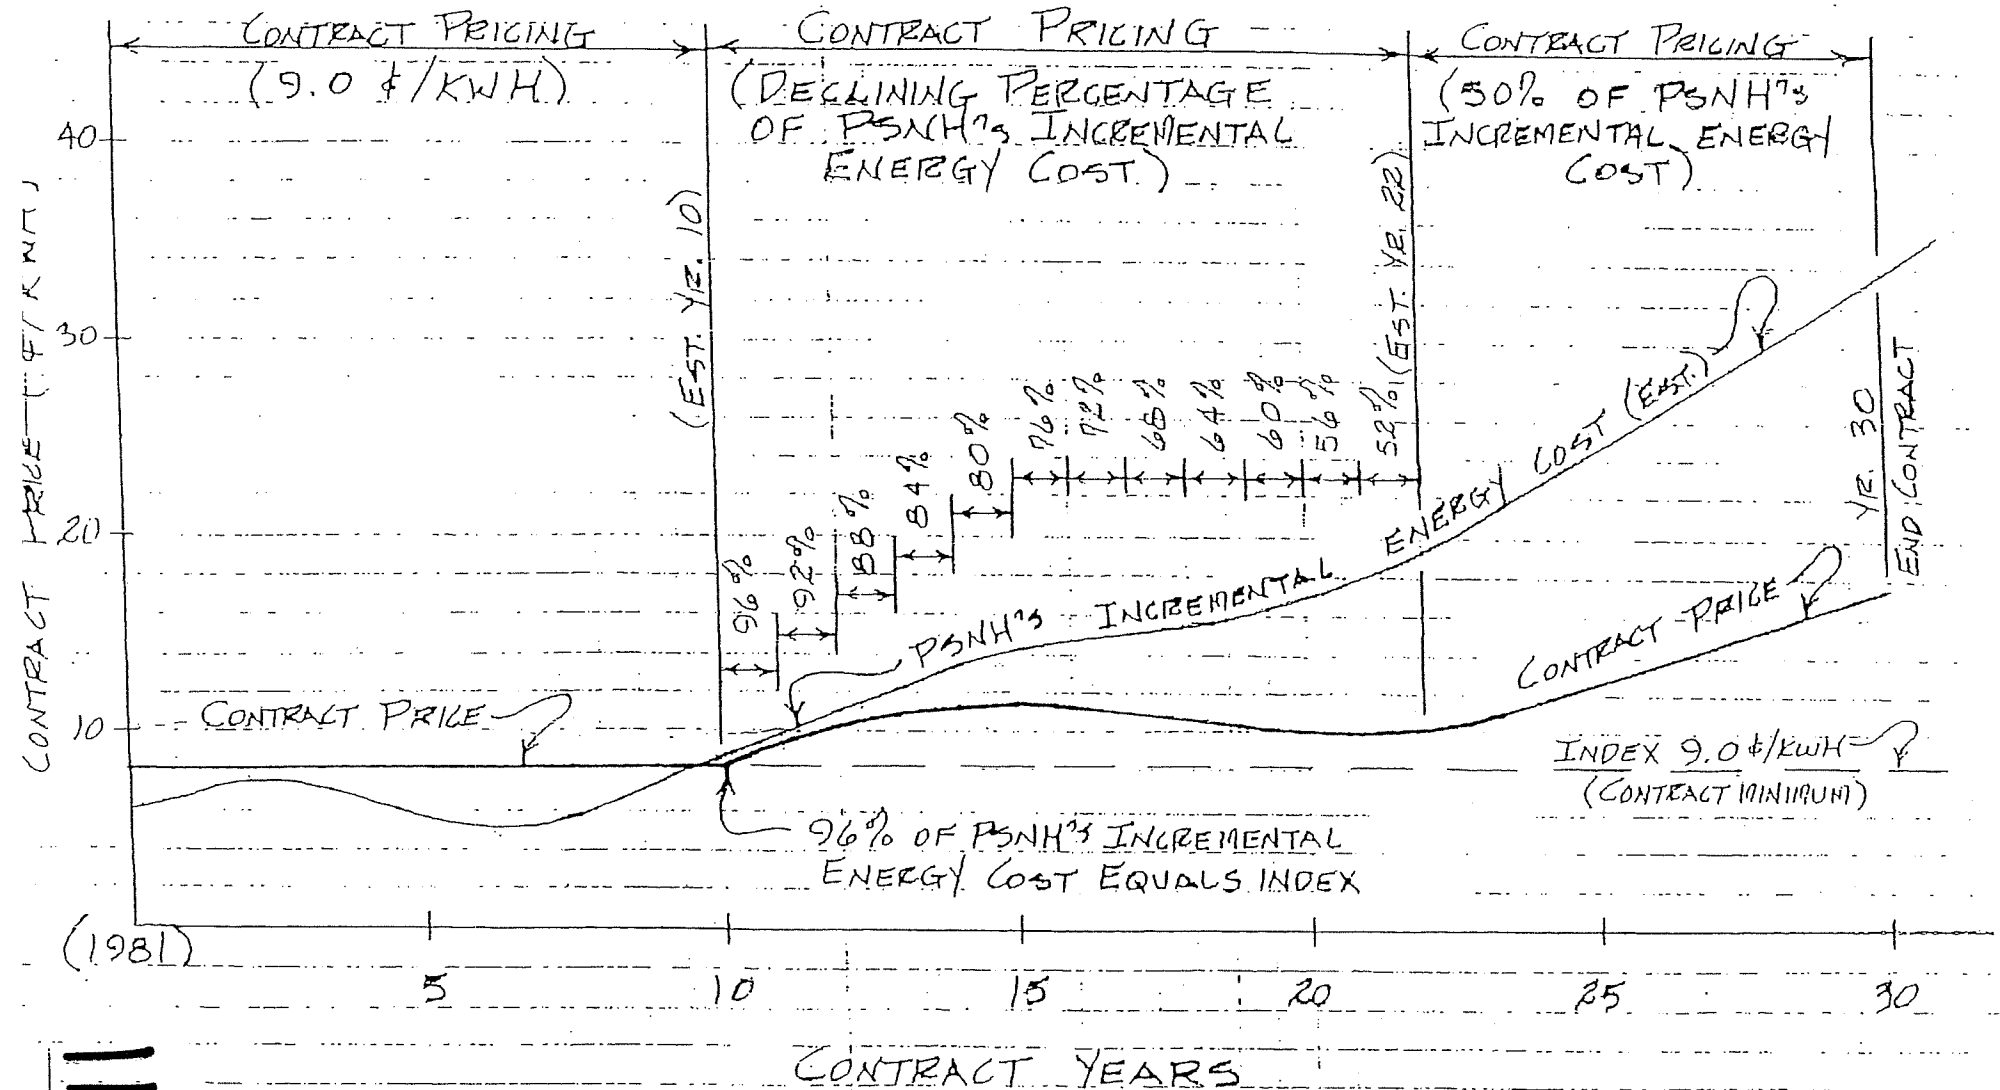 CONTRACT PRICING
(9.0 ¢/KWH)
CONTRACT PRICING
(DECLINING PERCENTAGE
OF PSNH's INCREMENTAL
ENERGY COST)
CONTRACT PRICING
(50% OF PSNH's
INCREMENTAL ENERGY
COST)
CONTRACT PRICE (¢/KWH)
40
30
20
10
(EST. YR. 10)
(EST. YR. 22)
96%
92%
88%
84%
80%
76%
72%
68%
64%
60%
56%
52%
PSNH's INCREMENTAL ENERGY COST (EST.)
YR. 30
END CONTRACT
CONTRACT PRICE
CONTRACT PRICE
INDEX 9.0 ¢/KWH
(CONTRACT MINIMUM)
96% OF PSNH's INCREMENTAL
ENERGY COST EQUALS INDEX
(1981)
5
10
15
20
25
30
CONTRACT YEARS